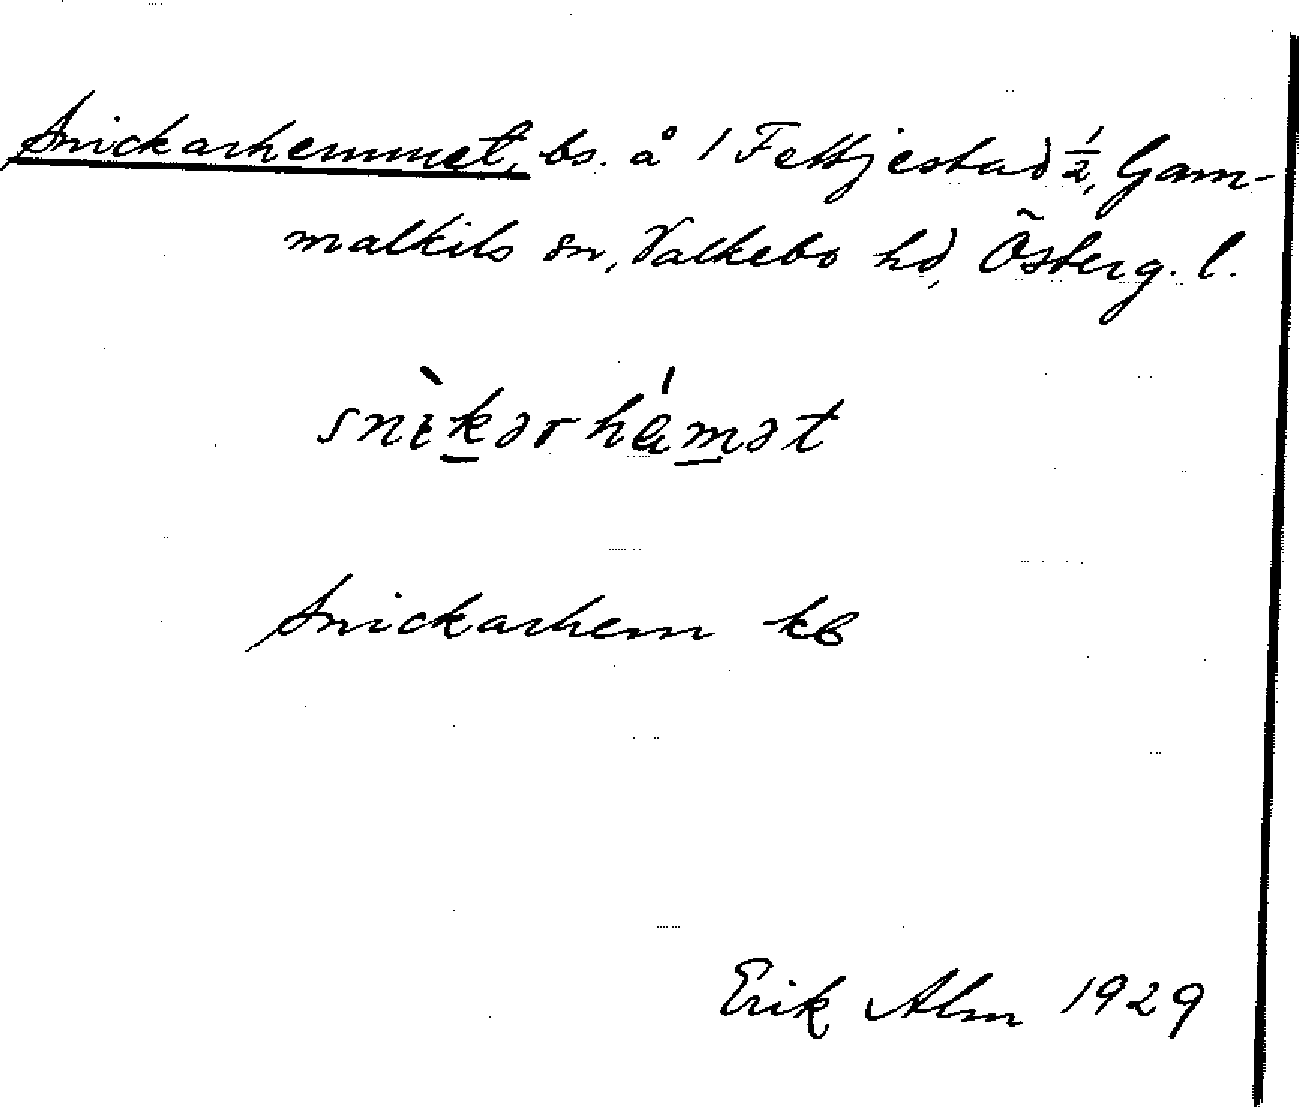 Snickarhemmet, bs. å 1 Fettjestad ½, Gam-
malkils sn, Valkebo hd, Österg. l.
snìkərhámət
Snickarhem kb
Erik Alm 1929